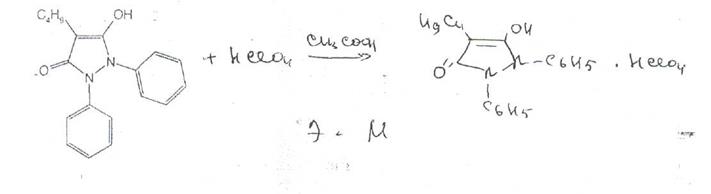 C₄H₉ OH
O N N
+ HClO₄ CH₃COOH
H₉C₄ OH
O N N - C₆H₅ . HClO₄
C₆H₅
M